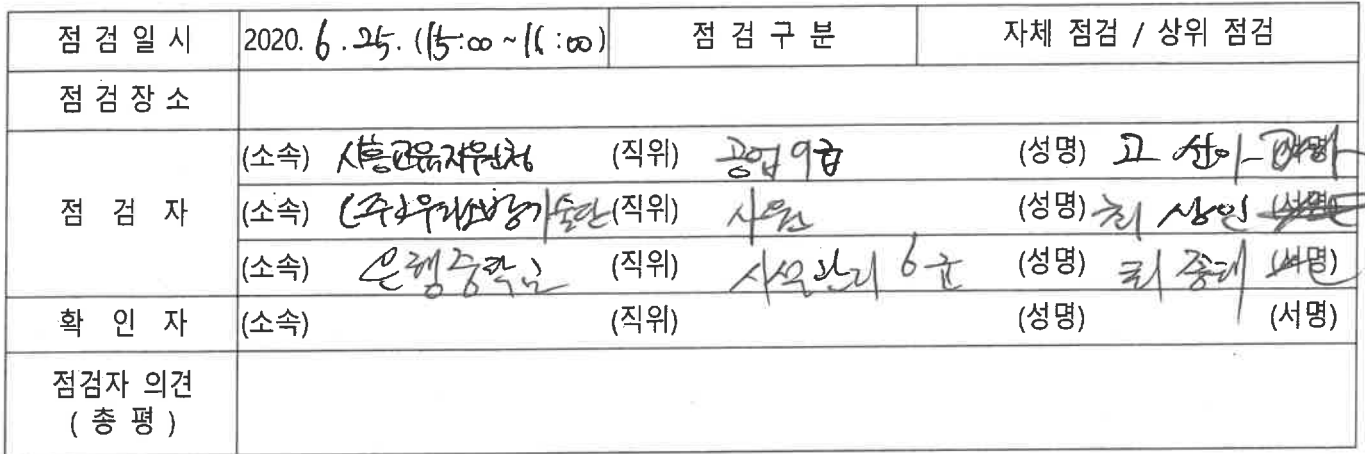 점 검 일 시 2020. 6. 25. (15:00 ~ 16:00) 점 검 구 분 자체 점검 / 상위 점검
점 검 장 소
점 검 자
(소속) 시흥교육지원청 (직위) 공업 9급 (성명) 고 산이
(소속) (주)우리소방기술단 (직위) 사원 (성명) 최 상인 (서명)
(소속) 은행중학교 (직위) 시설관리 6급 (성명) 최 종태 (서명)
확 인 자 (소속) (직위) (성명) (서명)
점검자 의견
( 총 평 )